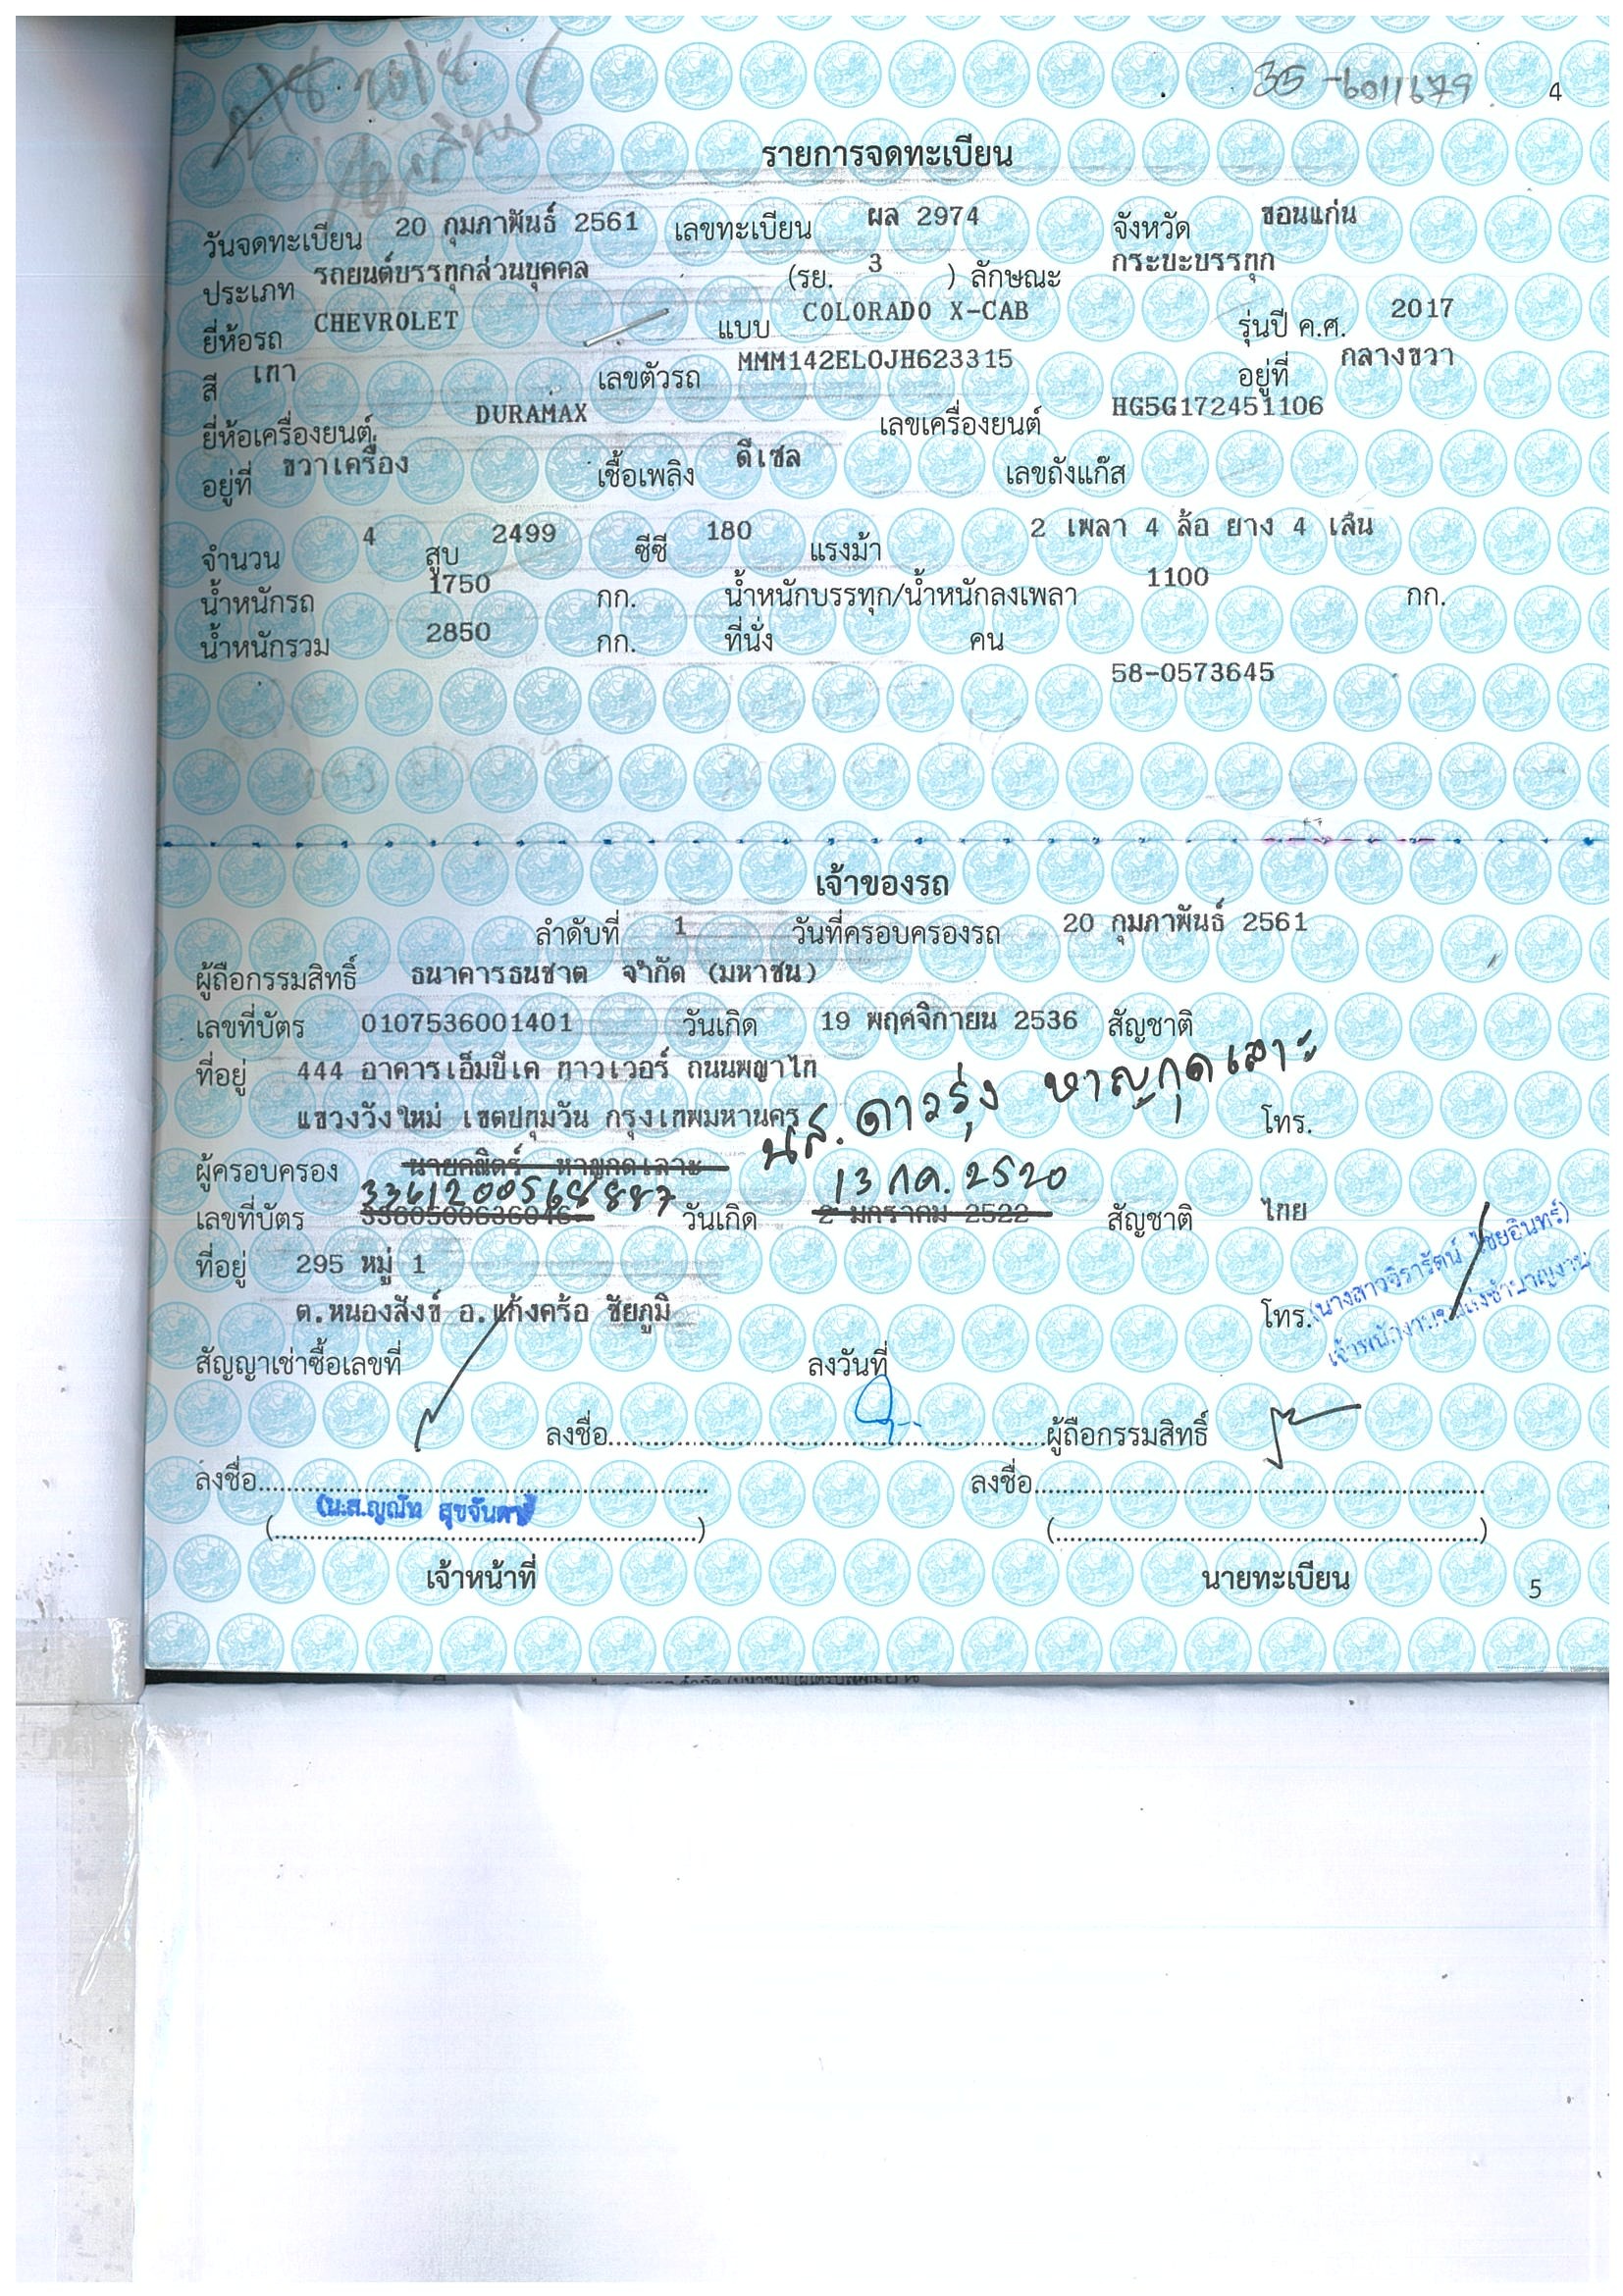 35-6011679
4
รายการจดทะเบียน
วันจดทะเบียน 20 กุมภาพันธ์ 2561 เลขทะเบียน ผล 2974 จังหวัด ขอนแก่น
ประเภท รถยนต์บรรทุกส่วนบุคคล (รย. 3 ) ลักษณะ กระบะบรรทุก
ยี่ห้อรถ CHEVROLET แบบ COLORADO X-CAB รุ่นปี ค.ศ. 2017
สี เทา เลขตัวรถ MMM142ELOJH623315 อยู่ที่ กลางขวา
ยี่ห้อเครื่องยนต์ DURAMAX เลขเครื่องยนต์ HG5G172451106
อยู่ที่ ขวาเครื่อง เชื้อเพลิง ดีเซล เลขถังแก๊ส
จำนวน 4 สูบ 2499 ซีซี 180 แรงม้า 2 เพลา 4 ล้อ ยาง 4 เส้น
น้ำหนักรถ 1750 กก. น้ำหนักบรรทุก/น้ำหนักลงเพลา 1100 กก.
น้ำหนักรวม 2850 กก. ที่นั่ง คน
58-0573645
เจ้าของรถ
ลำดับที่ 1 วันที่ครอบครองรถ 20 กุมภาพันธ์ 2561
ผู้ถือกรรมสิทธิ์ ธนาคารธนชาต จำกัด (มหาชน)
เลขที่บัตร 0107536001401 วันเกิด 19 พฤศจิกายน 2536 สัญชาติ
ที่อยู่ 444 อาคารเอ็มบีเค ทาวเวอร์ ถนนพญาไท
แขวงวังใหม่ เขตปทุมวัน กรุงเทพมหานคร โทร.
นส. ดาวรุ่ง หาญกุดเลาะ
ผู้ครอบครอง หาญกุดเลาะ 13 กค. 2520
3361200568887
เลขที่บัตร วันเกิด 2 มกราคม 2522 สัญชาติ ไทย
ที่อยู่ 295 หมู่ 1
ต.หนองสังข์ อ.แก้งคร้อ ชัยภูมิ โทร.
(นางสาวจิรารัตน์ ไชยอินทร์)
สัญญาเช่าซื้อเลขที่ ลงวันที่
ลงชื่อ ผู้ถือกรรมสิทธิ์
ลงชื่อ ลงชื่อ
เจ้าหน้าที่ นายทะเบียน
5